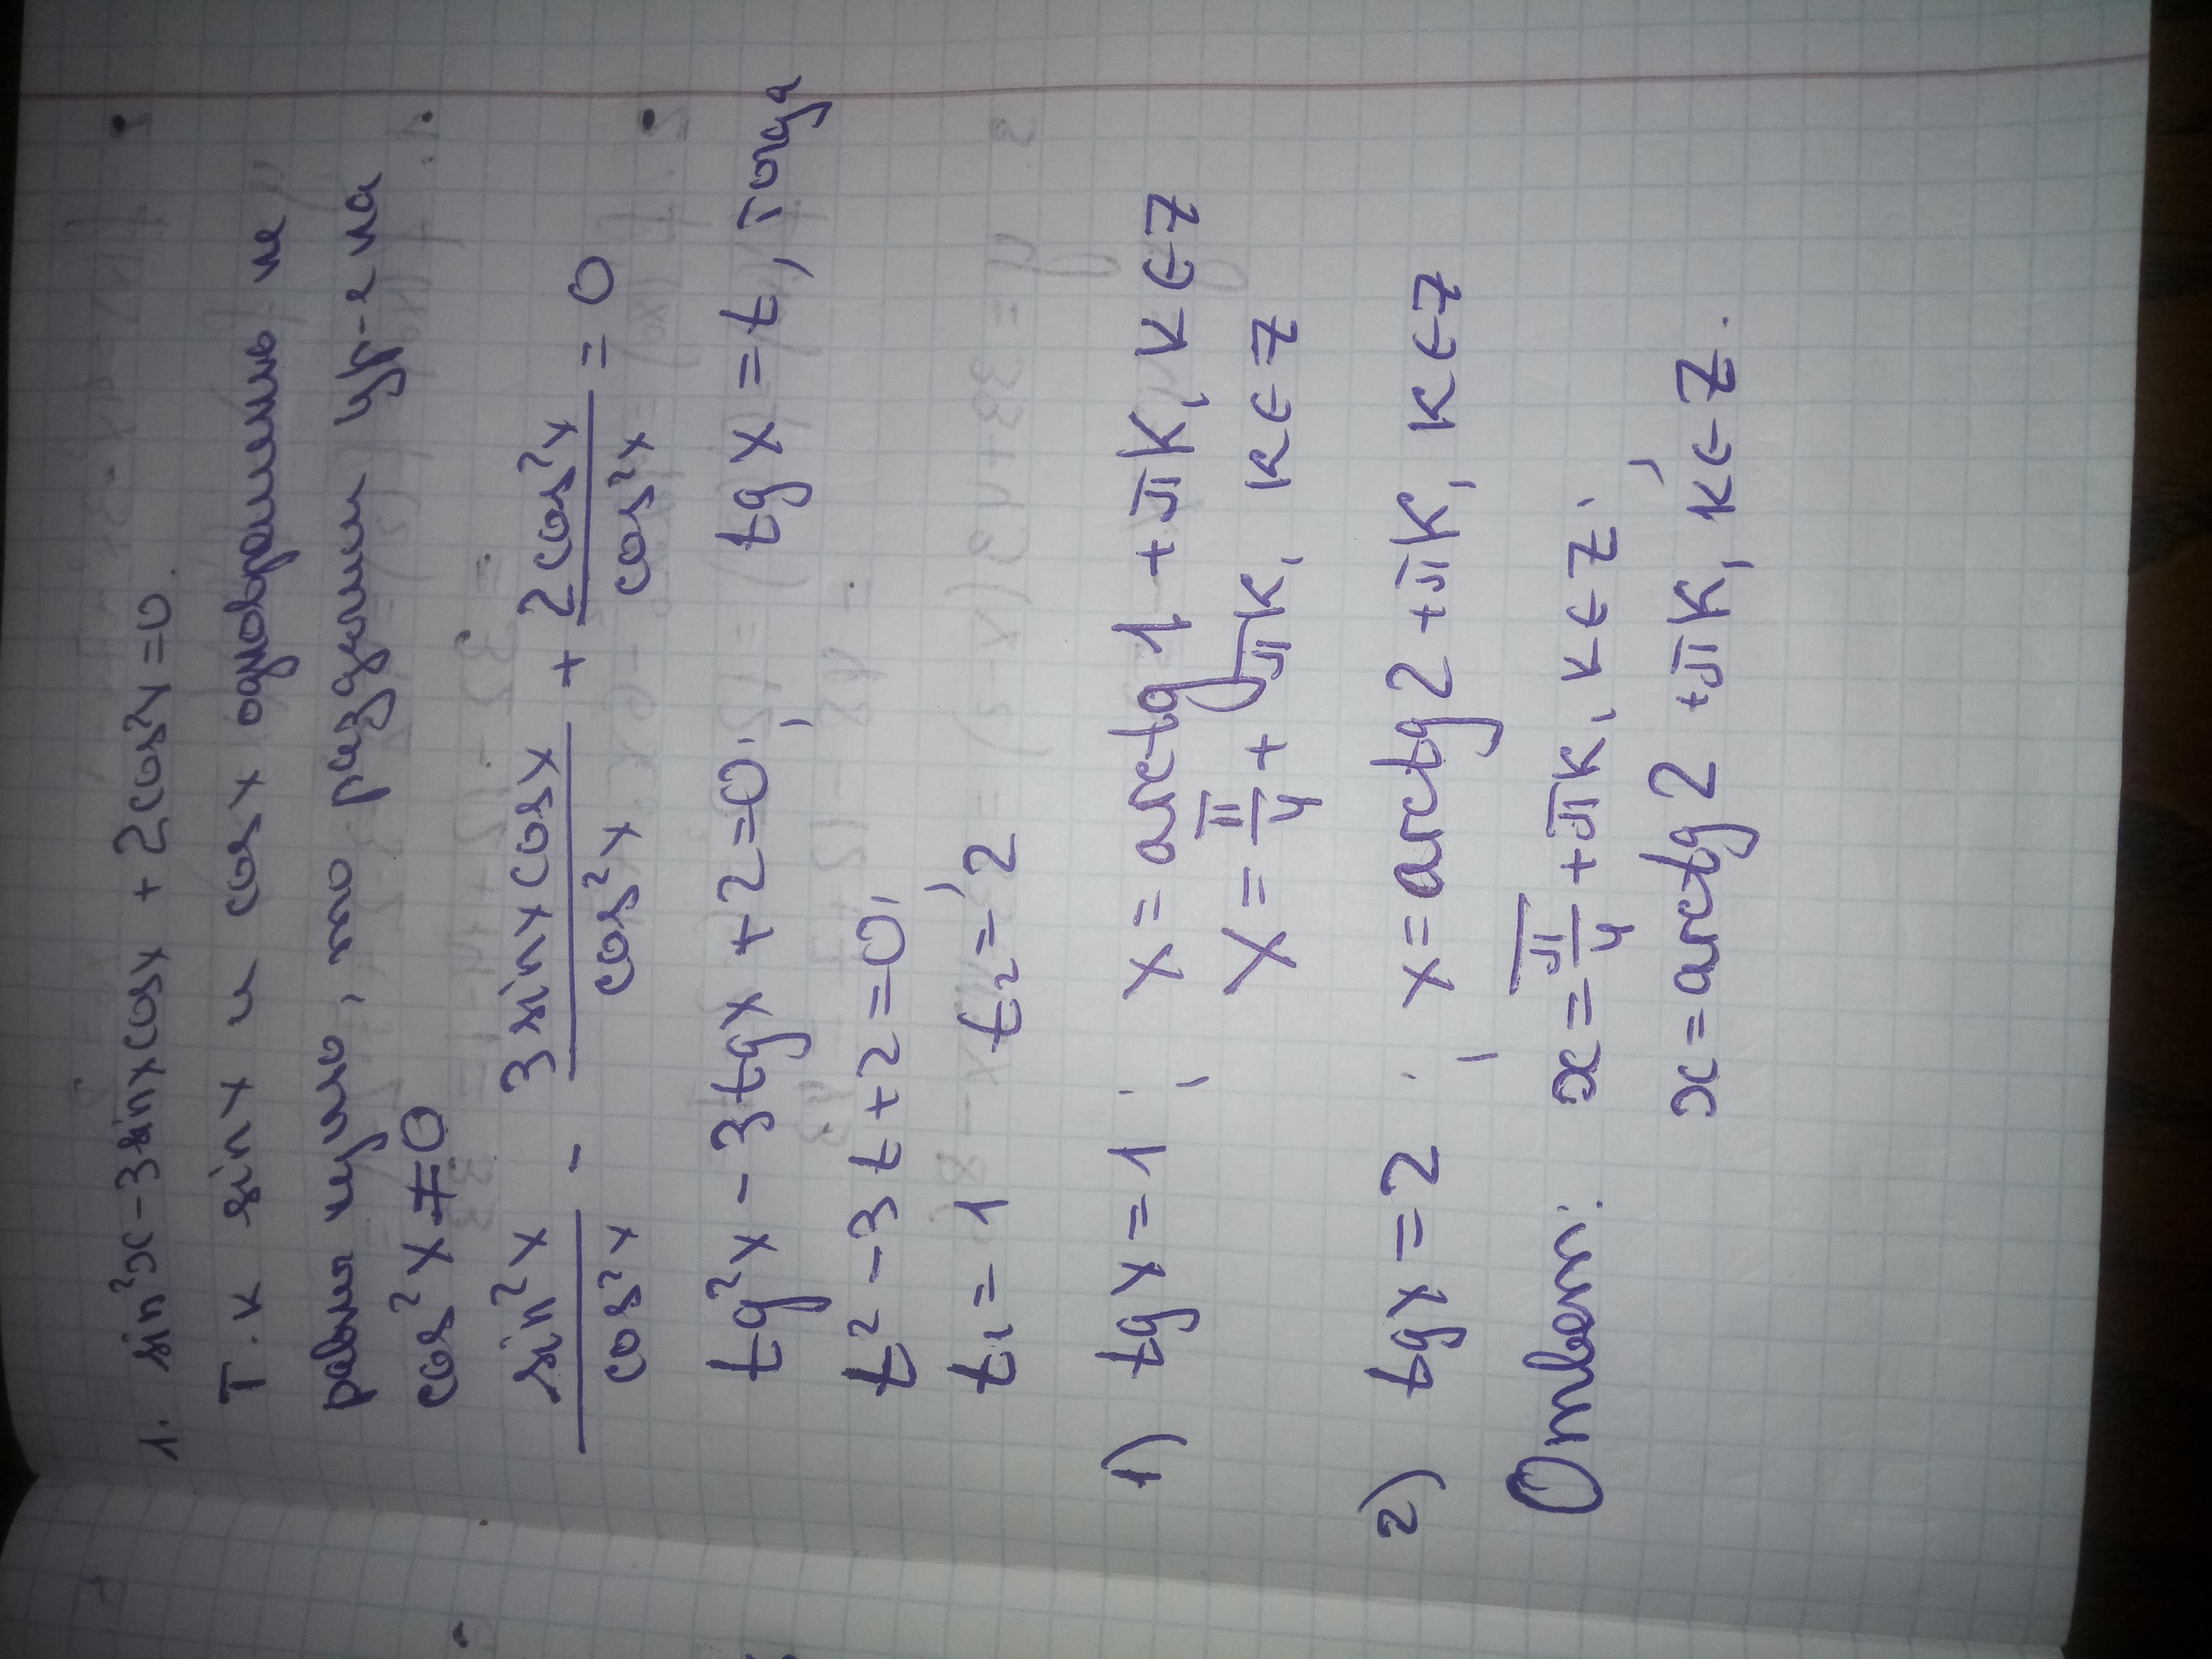 1. sin²x - 3 sinx cosx + 2cos²x = 0.
Т.к sinx и cosx одновременно не
равны нулю, то разделим ур-е на
cos²x ≠ 0
sin²x/cos²x - 3 sinx cosx/cos²x + 2cos²x/cos²x = 0
tg²x - 3tgx + 2 = 0; tgx = t, тогда
t² - 3t + 2 = 0,
t₁ = 1, t₂ = 2
1) tgx = 1; x = arctg 1 + πk, k ∈ Z
x = π/4 + πk, k ∈ Z
2) tgx = 2; x = arctg 2 + πk, k ∈ Z
Ответ: x = π/4 + πk, k ∈ Z;
x = arctg 2 + πk, k ∈ Z.